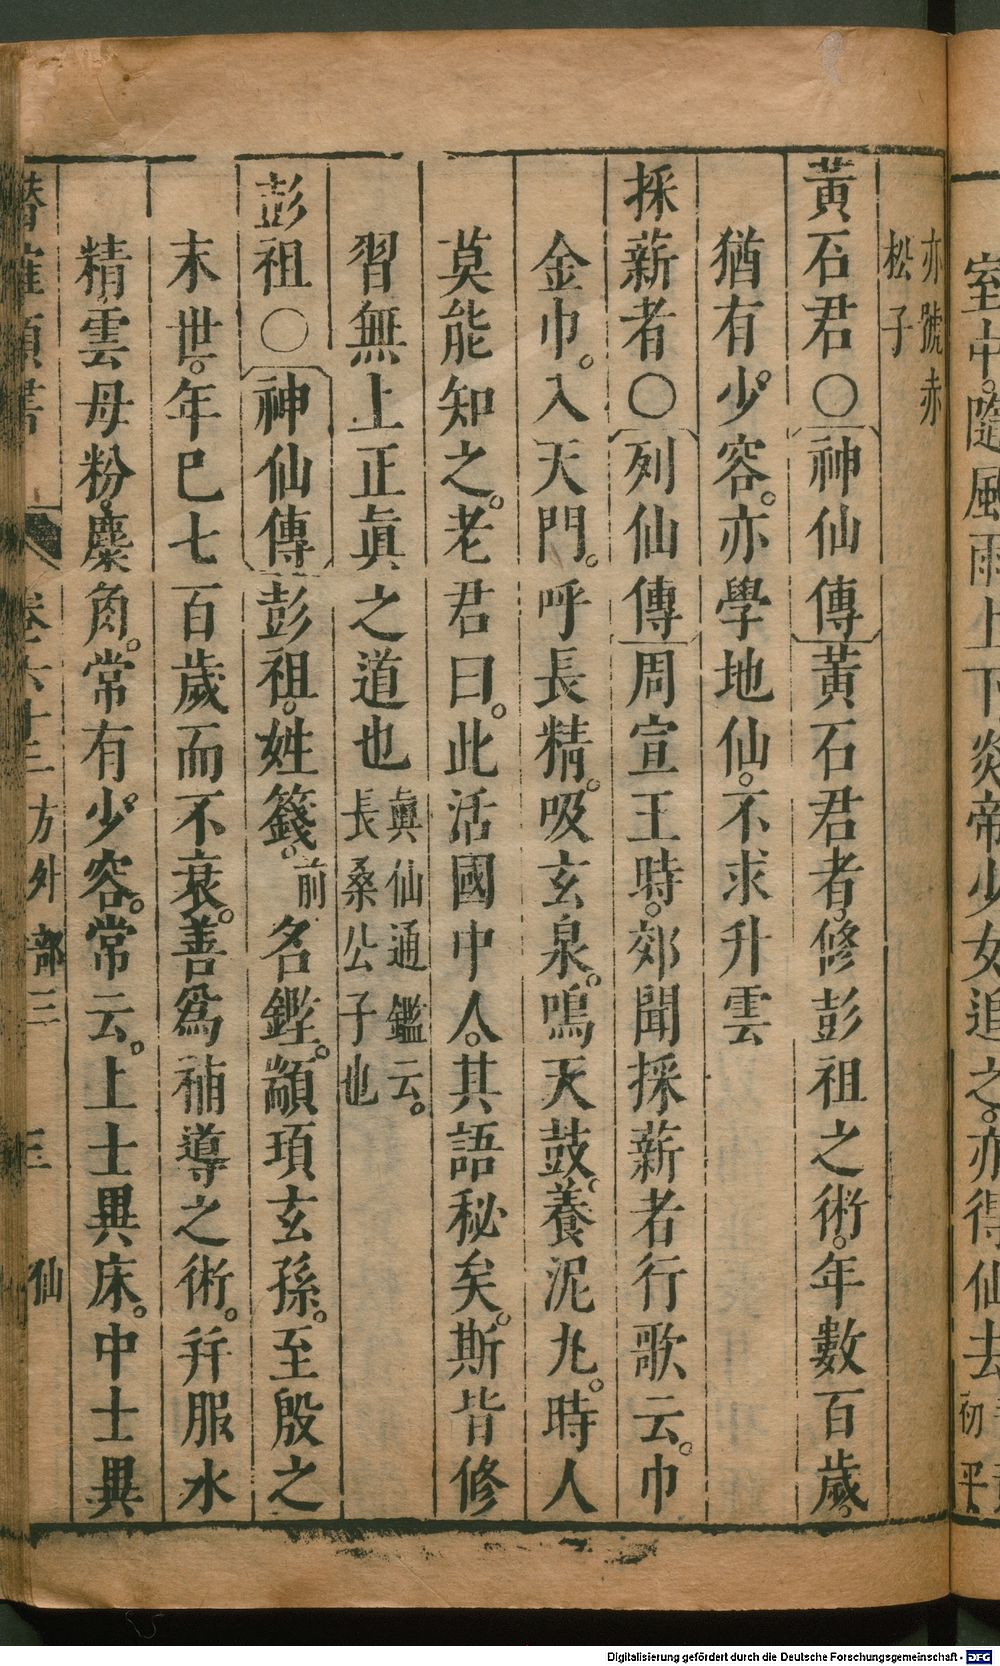 室中。隨風雨上下炎帝少女追之。亦得仙去
初平
亦號赤
松子
黃石君〇神仙傳黃石君者。修彭祖之術。年數百歲。
猶有少容。亦學地仙。不求升雲
採薪者〇列仙傳周宣王時。郊聞採薪者行歌云。巾
金巾。入天門。呼長精。吸玄泉。鳴天鼓。養泥丸。時人
莫能知之。老君曰。此活國中人。其語秘矣。斯皆修
習無上正眞之道也
眞仙通鑑云。
長桑公子也
彭祖〇神仙傳彭祖。姓籛。前名鏗。顓頊玄孫。至殷之
末世。年已七百歲而不衰。善爲補導之術。幷服水
精雲母粉。麋角。常有少容。常云。上士異床。中士異
潛確類書 卷六十三 方外部三 三 仙
Digitalisierung gefördert durch die Deutsche Forschungsgemeinschaft - DFG